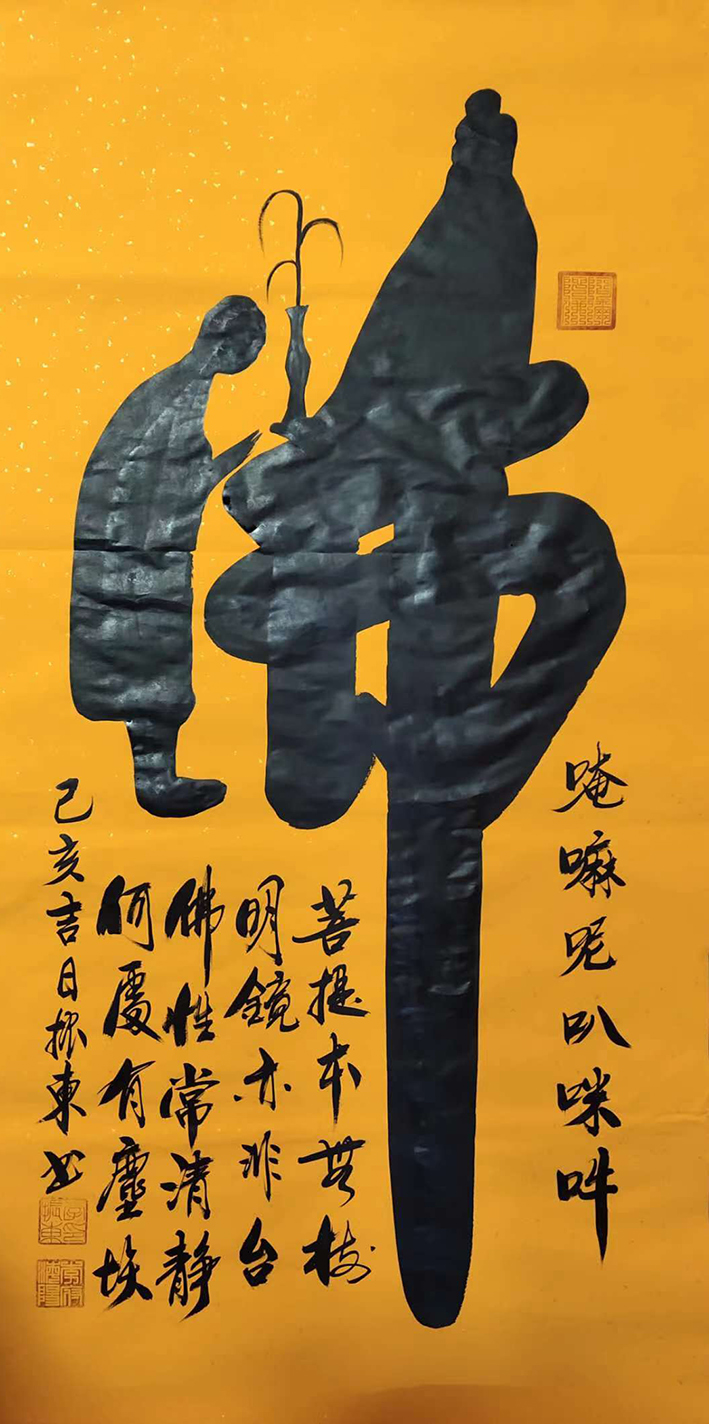 佛
唵嘛呢叭咪吽
菩提本無树
明鏡亦非台
佛性常清静
何處有塵埃
己亥吉日振東书